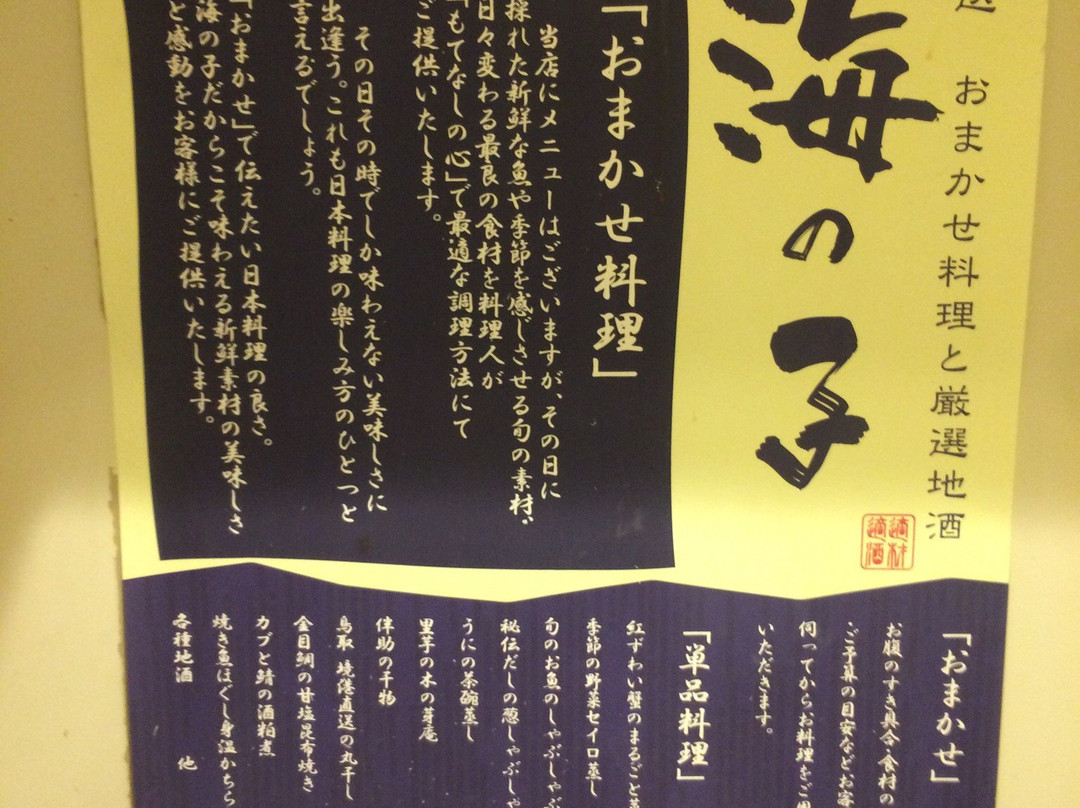 おまかせ料理と厳選地酒
海の子
適材
適酒
「おまかせ料理」
当店にメニューはございますが、その日に
採れた新鮮な魚や季節を感じさせる旬の素材、
日々変わる最良の食材を料理人が
「もてなしの心」で最適な調理方法にて
ご提供いたします。
その日その時でしか味わえない美味しさに
出逢う。これも日本料理の楽しみ方のひとつと
言えるでしょう。
「おまかせ」で伝えたい日本料理の良さ。
海の子だからこそ味わえる新鮮素材の美味しさ
と感動をお客様にご提供いたします。
「おまかせ」
お腹のすき具合・食材の
ご予算の目安などお客
伺ってからお料理をご用
いただきます。
「単品料理」
紅ずわい蟹のまるごと蒸
季節の野菜セイロ蒸し
旬のお魚のしゃぶしゃぶ
秘伝だしの葱しゃぶしゃ
うにの茶碗蒸し
里芋の木の芽庵
伴助の干物
鳥取 境港直送の丸干し
金目鯛の甘塩昆布焼き
カブと鯖の酒粕煮
焼き魚ほぐし身温かちら
各種地酒 他